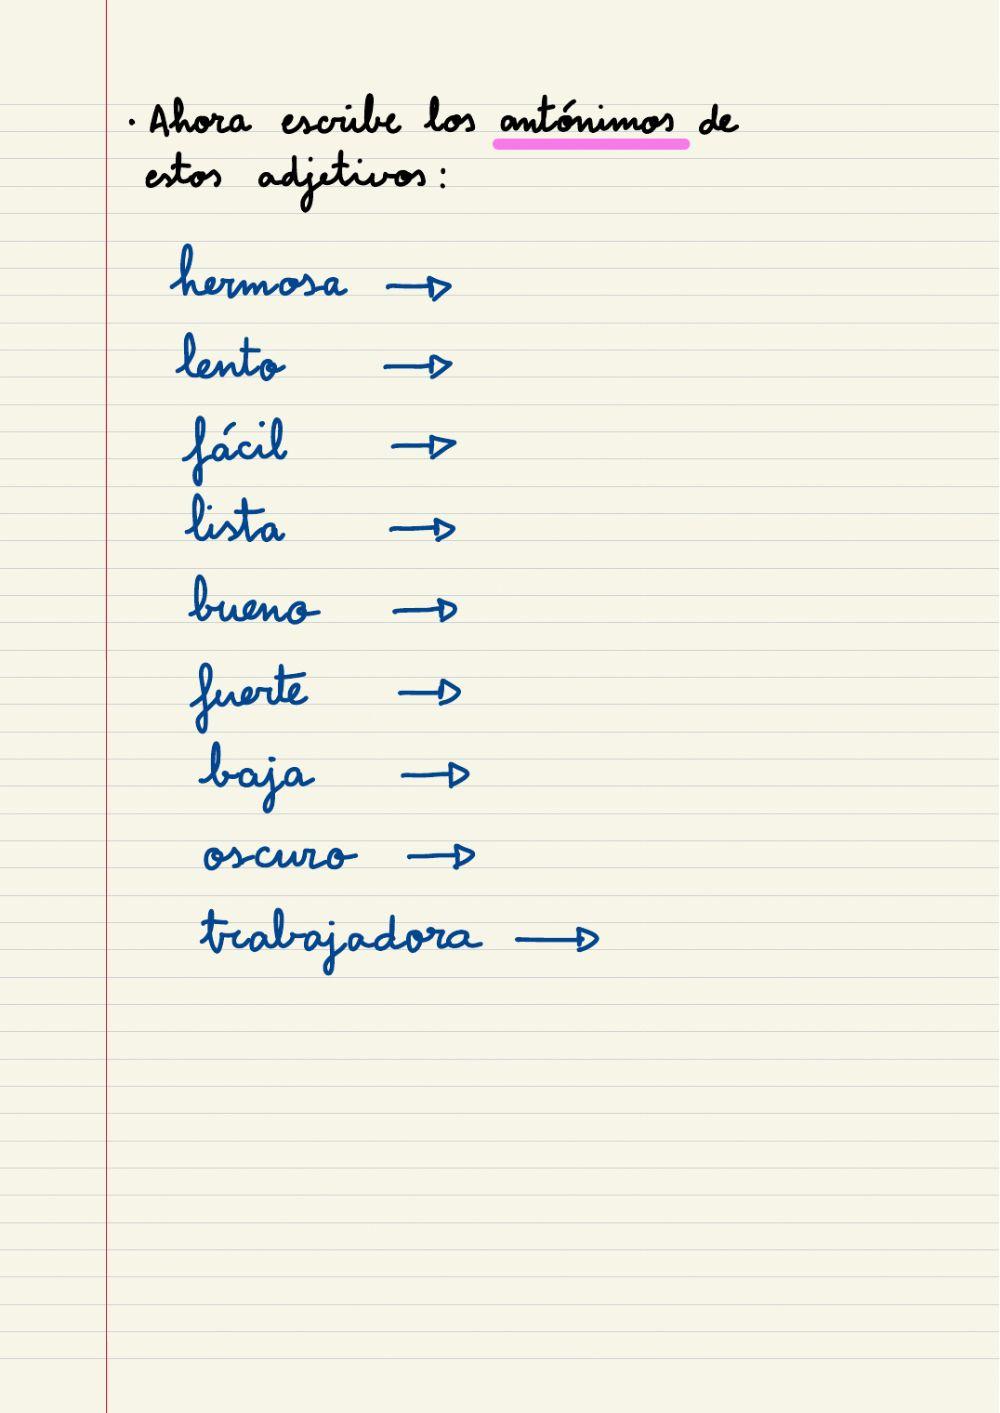 · Ahora escribe los antónimos de
estos adjetivos:
hermosa →
lento →
fácil →
lista →
bueno →
fuerte →
baja →
oscuro →
trabajadora →